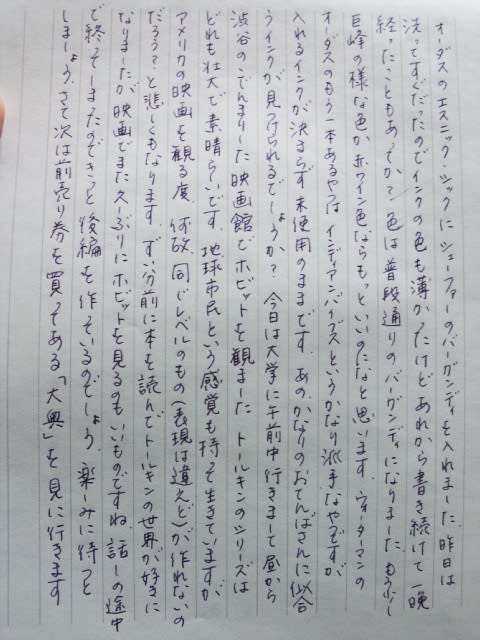 オーダスのエスニック・シックにシェーファーのバーガンディを入れました。昨日は
洗ってすぐだったのでインクの色も薄かったけどあれから書き続けて一晩
経ったこともあってか、色は普段通りのバーガンディになりました。もう少し
巨峰の様な色か赤ワイン色ならもっといいのになと思います。ウォーターマンの
オーダスのもう一本あるやつはインディアンバイブスというかなり派手なやつですが
入れるインクが決まらず未使用のままです。あのかなりのおてんばさんに似合
うインクが見つけられるでしょうか？今日は大学に午前中行きまして昼から
渋谷のこぢんまりした映画館でホビットを観ました。トールキンのシリーズは
どれも壮大で素晴らしいです。地球市民という感覚も持って生きていますが
アメリカの映画を観る度、何故、同じレベルのもの（表現は違えど）が作れないの
だろう？と悲しくもなります。ずい分前に本を読んでトールキンの世界が好きに
なりましたが映画でまた久しぶりにホビットを見るのもいいものですね。話しの途中
で終ってしまったのできっと後編を作っているのでしょう。楽しみに待つと
しましょう。さて次は前売り券を買ってある「大奥」を見に行きます